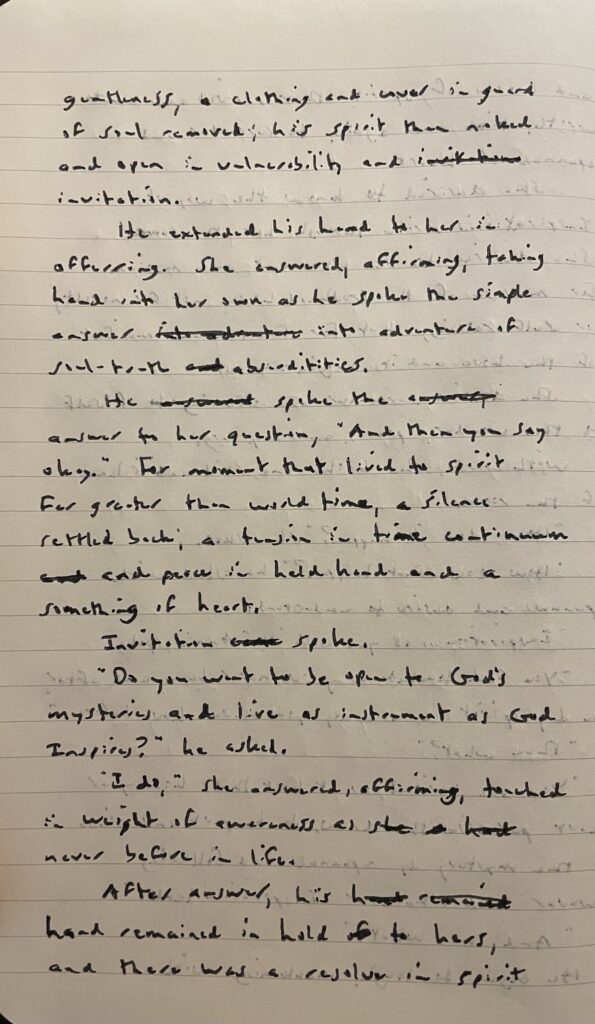 gentleness, a clothing and cover in guard
of soul removed; his spirit then naked
and open in vulnerability and invitation
invitation.
He extended his hand to her in
offerring. She answered, affirming, taking
hand into her own as he spoke the simple
answer into adventure into adventure of
soul-truth and absurditities.
He answered spoke the answer
answer to her question, "And then you say
okay." For moment that lived to spirit
far greater than world time, a silence
settled back; a tension in time continuum
and and peace in held hand and a
something of heart.
Invitation spoke.
"Do you want to be open to God's
mysteries and live as instrument as God
Inspires?" he asked.
"I do," she answered, affirming, touched
in weight of awareness as she had
never before in life.
After answer, his hand remained
hand remained in hold of to hers,
and there was a resolve in spirit